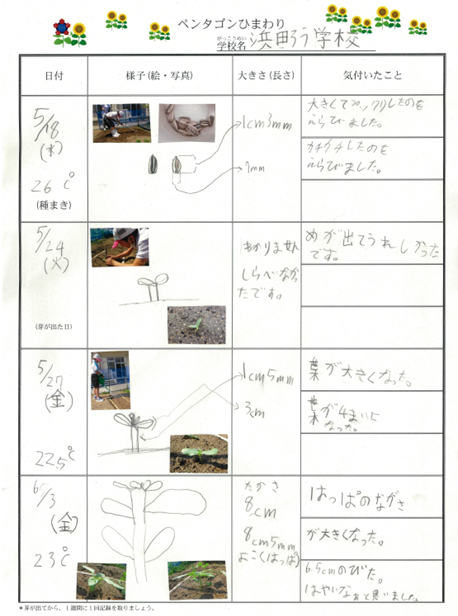 ペンタゴンひまわり
がっこうめい
学校名 浜町小学校
日付
様子(絵・写真)
大きさ(長さ)
気付いたこと
5/18
(水)
26℃
(種まき)
1cm3mm
7mm
えらびました。
ガチガチしたのを
えらびました。
5/24
(火)
(芽が出た日)
わかりません
しらべなかっ
たです。
めが出てうれしかった
です。
5/27
(金)
22.5℃
1cm5mm
3cm
葉が大きくなった。
葉が4まいに
なった。
6/3
(金)
23℃
たかさ
8cm
8cm5mm
よこ(はっぱ)
はっぱのながさ
が大きくなった。
6.5cmのびた。
はやいなぁと思いました。
*芽が出てから、1週間に1回記録を取りましょう。